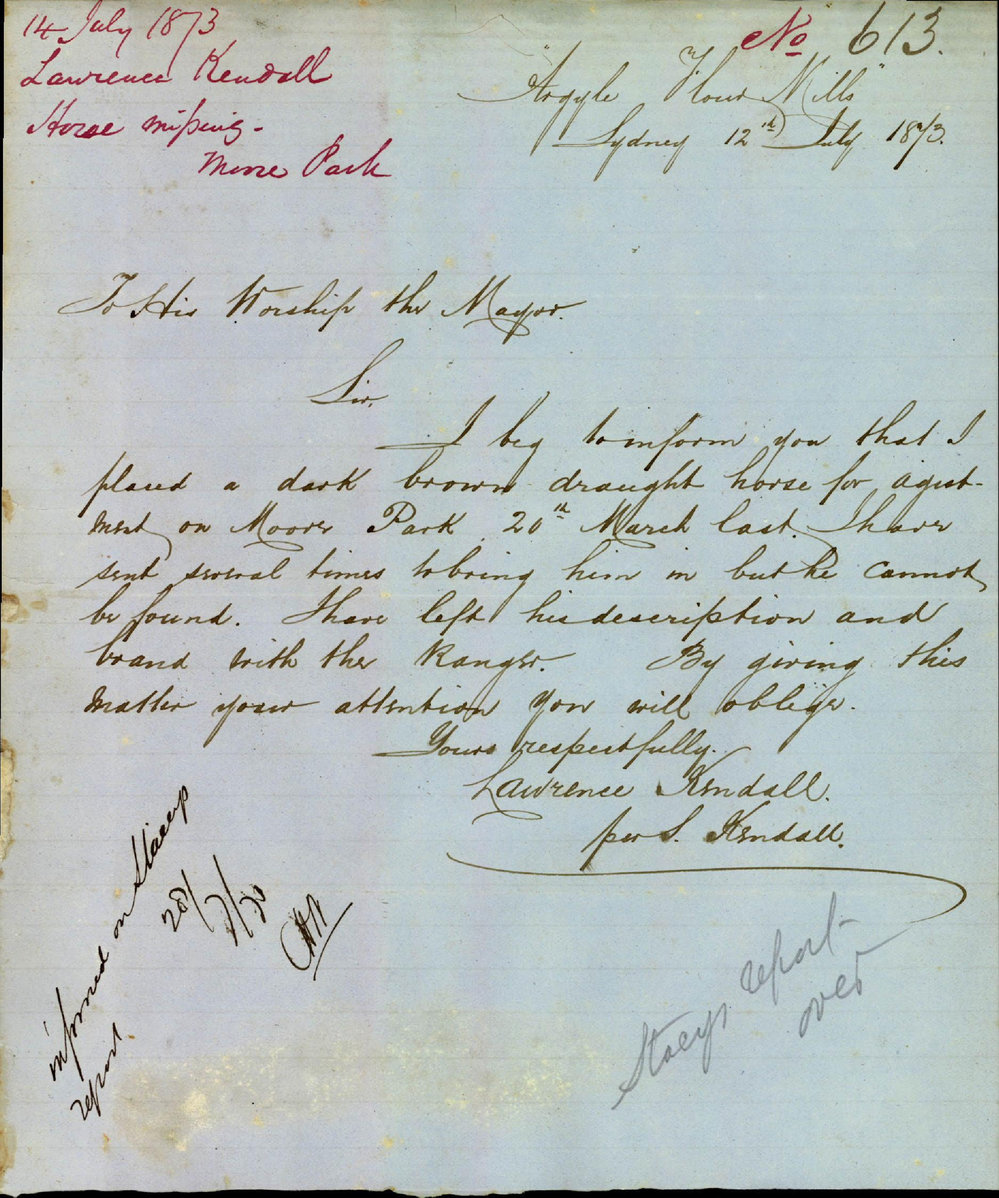 14 July 1873
Lawrence Kendall
Horse missing -
Moore Park
No 613.
"Argyle Flour Mills"
Sydney 12th July 1873.
To His Worship the Mayor.
Sir,
I beg to inform you that I
placed a dark brown draught horse for agist-
ment on Moore Park 20th March last. I have
sent several times to bring him in but he cannot
be found. I have left his description and
brand with the Ranger. By giving this
matter your attention you will oblige.
Yours respectfully.
Lawrence Kendall.
per S. Kendall.
informed on Staceys
report
28/7/73
Staceys report
over